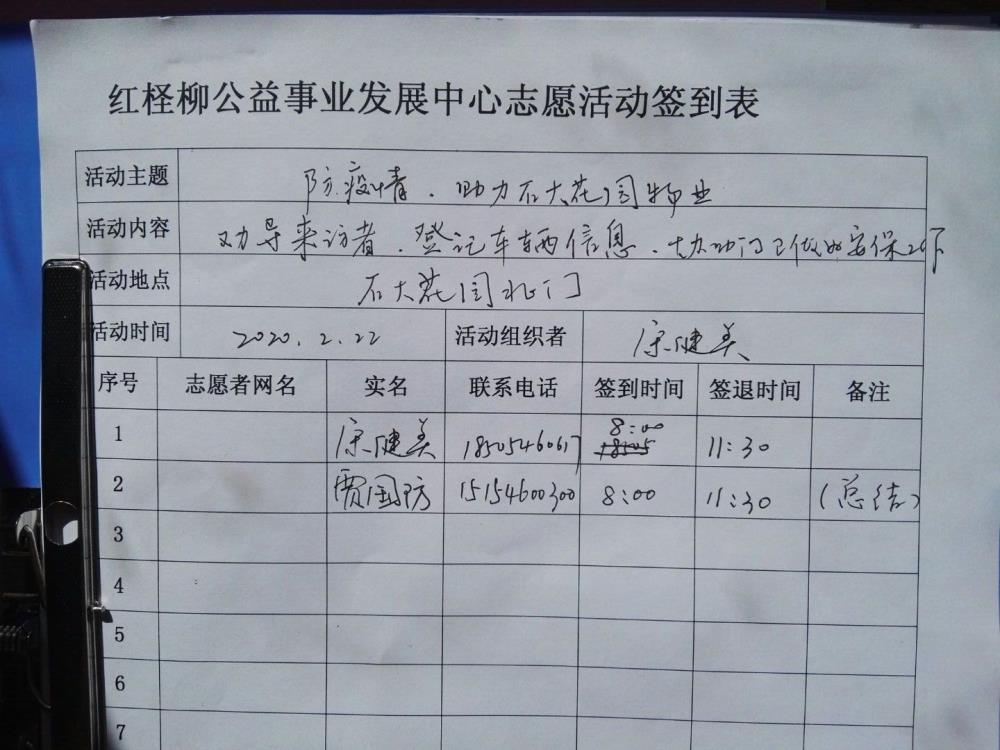 红柽柳公益事业发展中心志愿活动签到表
活动主题 防疫情、助力石大花园物业
活动内容 劝导来访者、登记车辆信息、协助门卫做好安保工作
活动地点 石大花园北门
活动时间 2020.2.22 活动组织者 宗健美
序号 志愿者网名 实名 联系电话 签到时间 签退时间 备注
1 宗健美 18505460617 8:00 11:30
2 贾国防 15154600300 8:00 11:30 (总结)
3
4
5
6
7